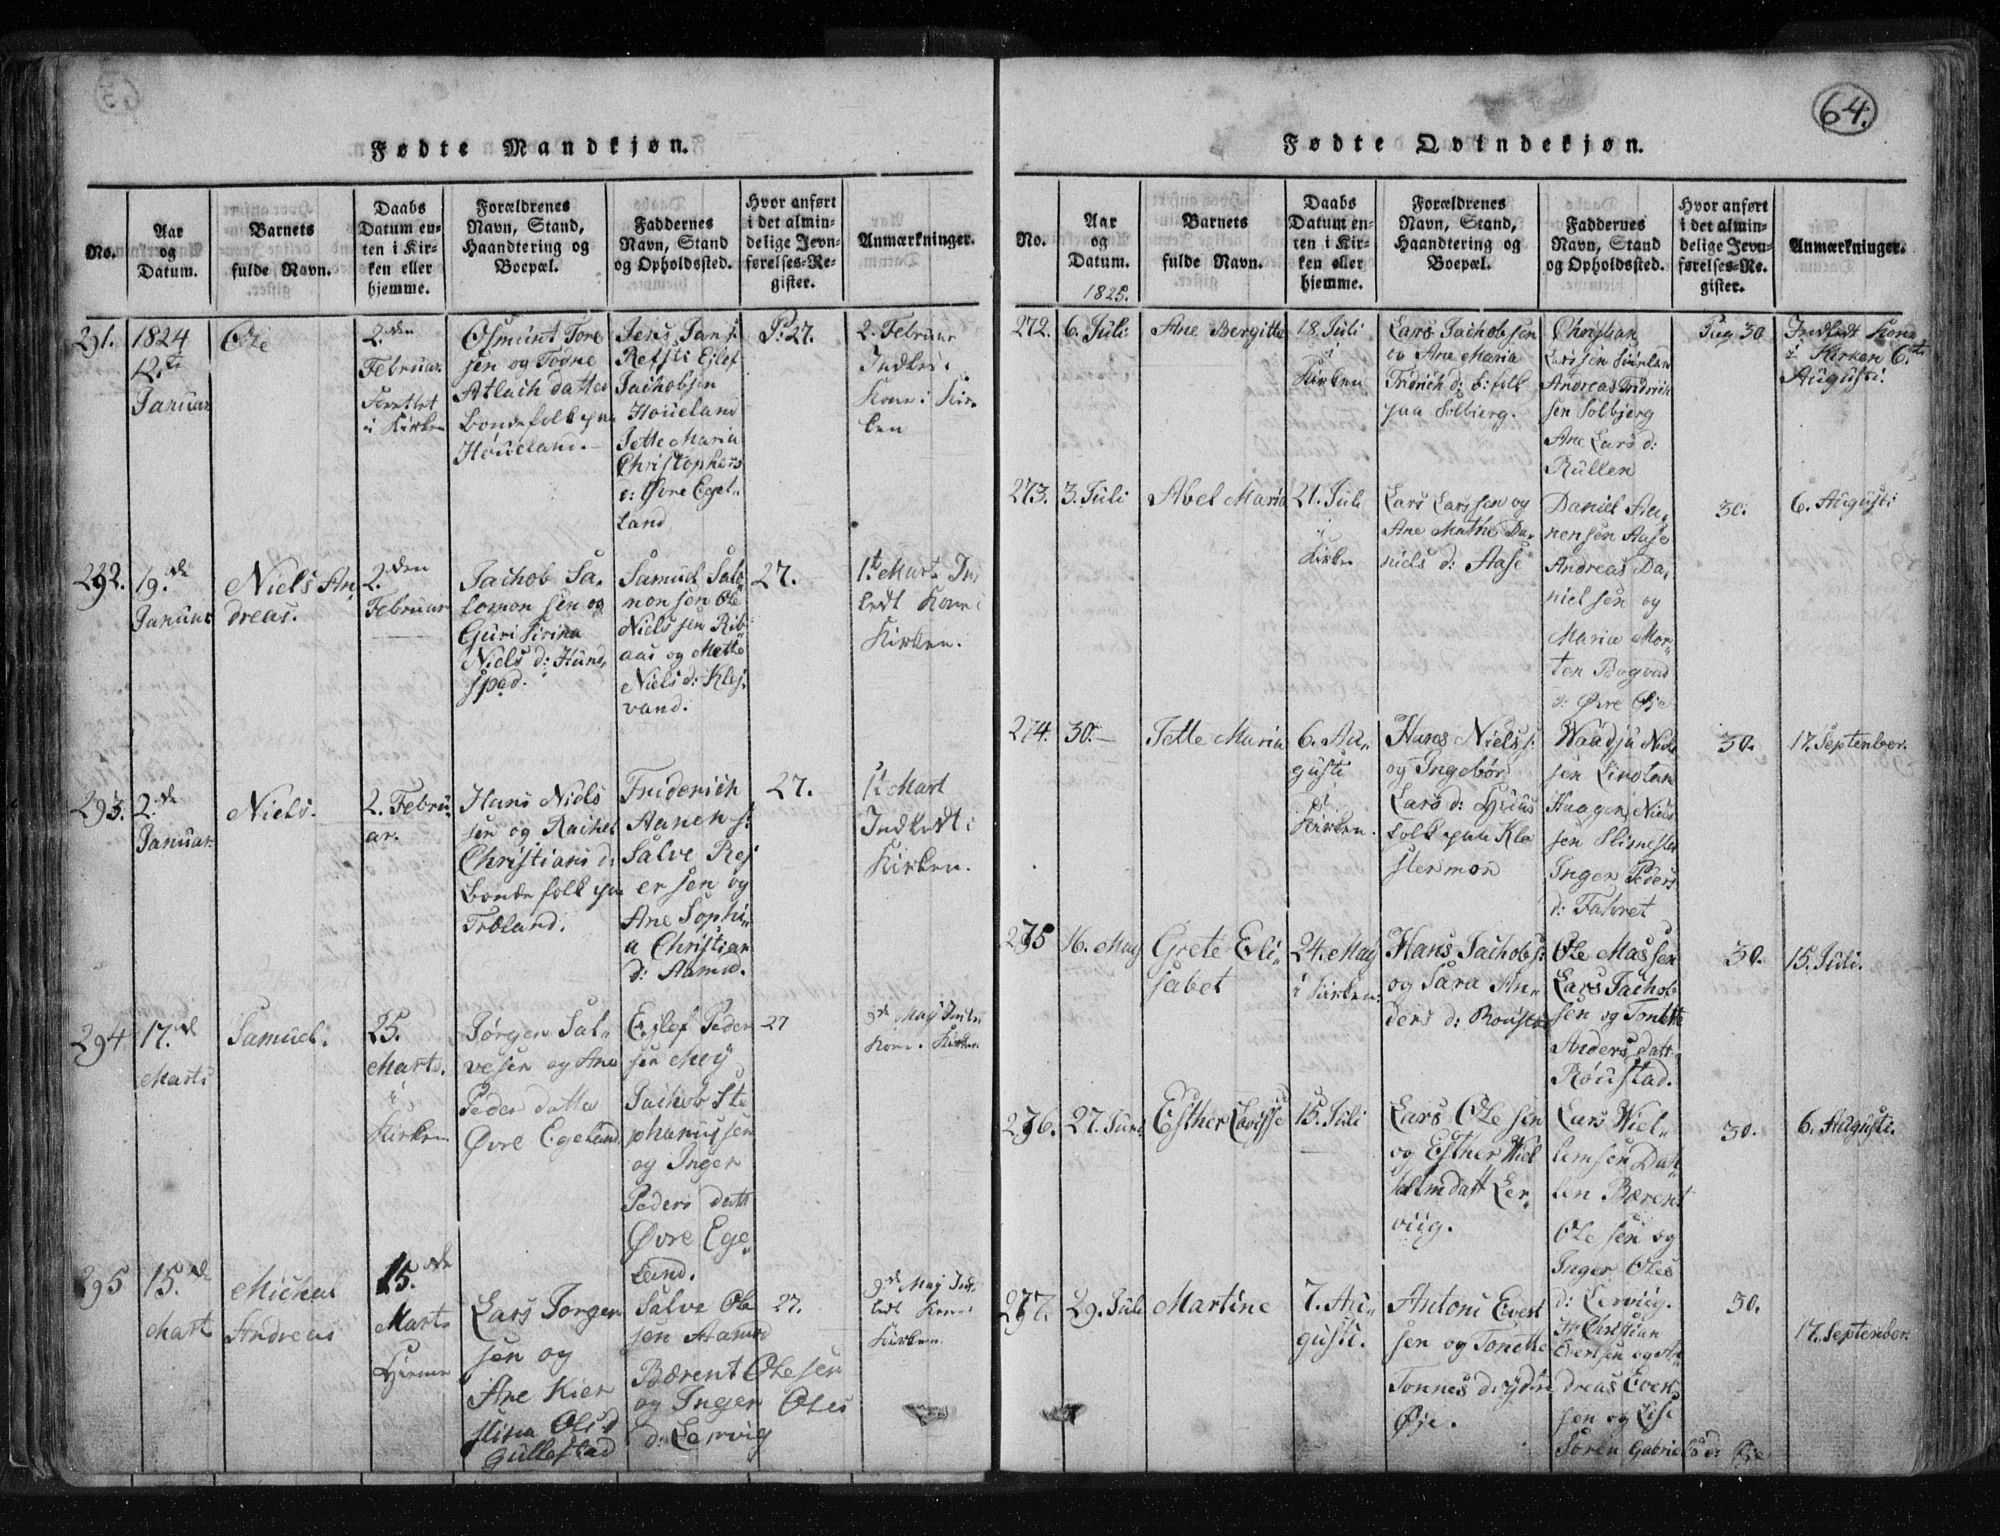 64.
Fødte Mandkjøn.
No.
Aar
og
Datum.
Barnets
fulde Navn.
Daabs
Datum en-
ten i Kir-
ken eller
hjemme.
Forældrenes
Navn, Stand,
Haandtering og
Boepæl.
Faddernes
Navn, Stand
og Opholdssted.
Hvor anført
i det almin-
delige Jevn-
førelses-Re-
gister.
Anmærkninger.
291.
1824
12.te
Januar
Ole
2.den
Februar
i Kirken
Osmunt Tore
sen og Todne
Atlach datter
bondefolk paa
Houeland.
Jens Jans:
Refsti Ejlef
Jachobsen
Houeland
Jette Maria
Christophers
d: Øvre Egel„
land
P: 27.
2. Februar
Indled i
Kone i Kir-
ken
292.
19.de
Januar
Niels An
dreas.
2.den
Februar
Jachob Sa„
lomon sen og
Guri Sirina
Niels d: Hund„
sped.
Samuel Salo
monsen Ole
Niels sen Rib„
aas og Mette
Niels d: Klej„
vand.
27.
1.t Mart. In
ledt Kone i
Kirken.
293.
2.de
Januar.
Niels.
2. Febru„
ar.
Hans Niels
sen og Rachel
Christians d:
bondefolk paa
Troland.
Friderich
Aanen s:
Salve Rej
ersen og
Ane Sophi„
a Christian
d: Aamod.
27.
1.t Mart
Indledt i
Kirken.
294.
17.de
Marts
Samuel.
25.
Marts.
i
Kirken
Jørgen Sal„
vesen og Ane
Peder datter
Øvre Egeland
Ejlef Peder
sen Moy
Jachob Ste
phanus sen
og Inger
Peders datt
Øvre Ege„
land.
27
9de May Indle
Kone i Kirken
295
15.de
Mart
Michal
Andreas
15.de
Marts
Hjeme
Lars Jørgen
sen og
Ane Kier
stina Ols d
Gullestad
Salve Ole
sen Aamod
Bærent Olesen
og Inger Oles
d: Lervig
27.
9de May Ind„
ledt Kone i
Kirken
Fødte Qvindekjøn.
No.
Aar
og
Datum.
1825.
Barnets
fulde Navn.
Daabs
Datum en-
ten i Kir-
ken eller
hjemme.
Forældrenes
Navn, Stand,
Haandtering og
Boepæl.
Faddernes
Navn, Stand
og Opholdssted.
Hvor anført
i det almin-
delige Jevn-
førelses-Re-
gister.
Anmærkninger.
272.
6. Juli
Ane Bergitte
18. Juli
i
Kirken
Lars Jachobsen
og Ane Maria
Fridrich d: b: folk
paa Solbierg.
Christian
Larssen
Andreas Fridrich
sen Solbjerg
Ane Lars d:
Rullen
Pag 30
Indledt Kone
i Kirken 6.te
Augusti.
273.
3. Juli
Abel Maria
21. Juli
i
Kirken
Lars Larssen og
Ane Mathe Da„
niels d: Aase
Daniel An„
nensen Aase
Andreas Da„
niel sen og
Maria Mor„
ten Bogvad
d: Øvre Øje
30.
6. Augusti
274.
30.
Jette Maria
6. Au„
gusti
i
Kirken.
Hans Niels s:
og Ingebor
Lars d: Huus
folk paa Klo
stermon
Niels
sen
Haagen Niels
sen
Inger Peders
d: Fahret
30.
17. September.
275
16. May
Grete Eli„
sabet
24. May
i Kirken.
Hans Jachobs:
og Sara An„
ders d: Roustad
Ole Massen
Lars Jachob
sen og Tonette
Anders datt.
Roustad.
30.
15. Juli.
276.
27. Juni
Esther Lovisse
15. Juli
Lars Olesen
og Esther Wiel
helm datt Ler„
viig.
Lars Wiel„
lemsen Dat„
len Bærent
Olesen og
Inger Oles
d: Lerviig.
30.
6. Augusti.
277.
29. Juli
Martine
7. Au„
gusti.
Antoni Evert
sen og Tonette
Tonnes d: Ydre
Øie.
Christian
Evertsen og An
dreas Evert
sen og Lise
Søren Gabriels d: Øie
30.
17. September.